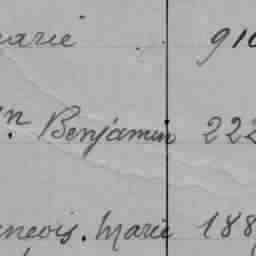 arie 910
n. Benjamin 222
ncois. Marie 188